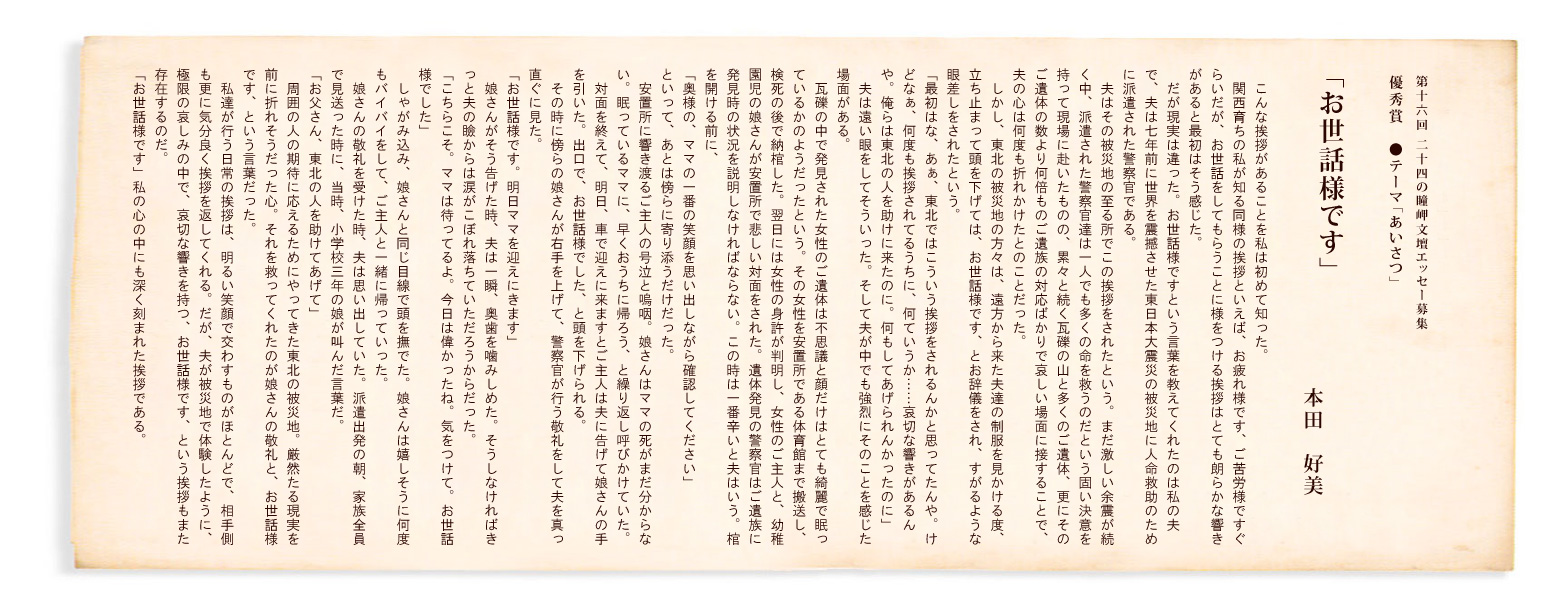 第十六回 二十四の瞳岬文壇エッセー募集
優秀賞 ●テーマ「あいさつ」
「お世話様です」
本田 好美
こんな挨拶があることを私は初めて知った。
関西育ちの私が知る同様の挨拶といえば、お疲れ様です、ご苦労様ですぐ
らいだが、お世話をしてもらうことに様をつける挨拶はとても朗らかな響き
があると最初はそう感じた。
だが現実は違った。お世話様ですという言葉を教えてくれたのは私の夫
で、夫は七年前に世界を震撼させた東日本大震災の被災地に人命救助のため
に派遣された警察官である。
夫はその被災地の至る所でこの挨拶をされたという。まだ激しい余震が続
く中、派遣された警察官達は一人でも多くの命を救うのだという固い決意を
持って現場に赴いたものの、累々と続く瓦礫の山と多くのご遺体、更にその
ご遺体の数より何倍ものご遺族の対応ばかりで哀しい場面に接することで、
夫の心は何度も折れかけたとのことだった。
しかし、東北の被災地の方々は、遠方から来た夫達の制服を見かける度、
立ち止まって頭を下げては、お世話様です、とお辞儀をされ、すがるような
眼差しをされたという。
「最初はな、あぁ、東北ではこういう挨拶をされるんかと思ってたんや。け
どなぁ、何度も挨拶されてるうちに、何ていうか……哀切な響きがあるん
や。俺らは東北の人を助けに来たのに。何もしてあげられんかったのに」
夫は遠い眼をしてそういった。そして夫が中でも強烈にそのことを感じた
場面がある。
瓦礫の中で発見された女性のご遺体は不思議と顔だけはとても綺麗で眠っ
ているかのようだったという。その女性を安置所である体育館まで搬送し、
検死の後で納棺した。翌日には女性の身許が判明し、女性のご主人と、幼稚
園児の娘さんが安置所で悲しい対面をされた。遺体発見の警察官はご遺族に
発見時の状況を説明しなければならない。この時は一番辛いと夫はいう。棺
を開ける前に、
「奥様の、ママの一番の笑顔を思い出しながら確認してください」
といって、あとは傍らに寄り添うだけだった。
安置所に響き渡るご主人の号泣と嗚咽。娘さんはママの死がまだ分からな
い。眠っているママに、早くおうちに帰ろう、と繰り返し呼びかけていた。
対面を終えて、明日、車で迎えに来ますとご主人は夫に告げて娘さんの手
を引いた。出口で、お世話様でした、と頭を下げられる。
その時に傍らの娘さんが右手を上げて、警察官が行う敬礼をして夫を真っ
直ぐに見た。
「お世話様です。明日ママを迎えにきます」
娘さんがそう告げた時、夫は一瞬、奥歯を噛みしめた。そうしなければき
っと夫の瞼からは涙がこぼれ落ちていただろうからだった。
「こちらこそ。ママは待ってるよ。今日は偉かったね。気をつけて。お世話
様でした」
しゃがみ込み、娘さんと同じ目線で頭を撫でた。娘さんは嬉しそうに何度
もバイバイをして、ご主人と一緒に帰っていった。
娘さんの敬礼を受けた時、夫は思い出していた。派遣出発の朝、家族全員
で見送った時に、当時、小学校三年の娘が叫んだ言葉だ。
「お父さん、東北の人を助けてあげて」
周囲の人の期待に応えるためにやってきた東北の被災地。厳然たる現実を
前に折れそうだった心。それを救ってくれたのが娘さんの敬礼と、お世話様
です、という言葉だった。
私達が行う日常の挨拶は、明るい笑顔で交わすものがほとんどで、相手側
も更に気分良く挨拶を返してくれる。だが、夫が被災地で体験したように、
極限の哀しみの中で、哀切な響きを持つ、お世話様です、という挨拶もまた
存在するのだ。
「お世話様です」私の心の中にも深く刻まれた挨拶である。